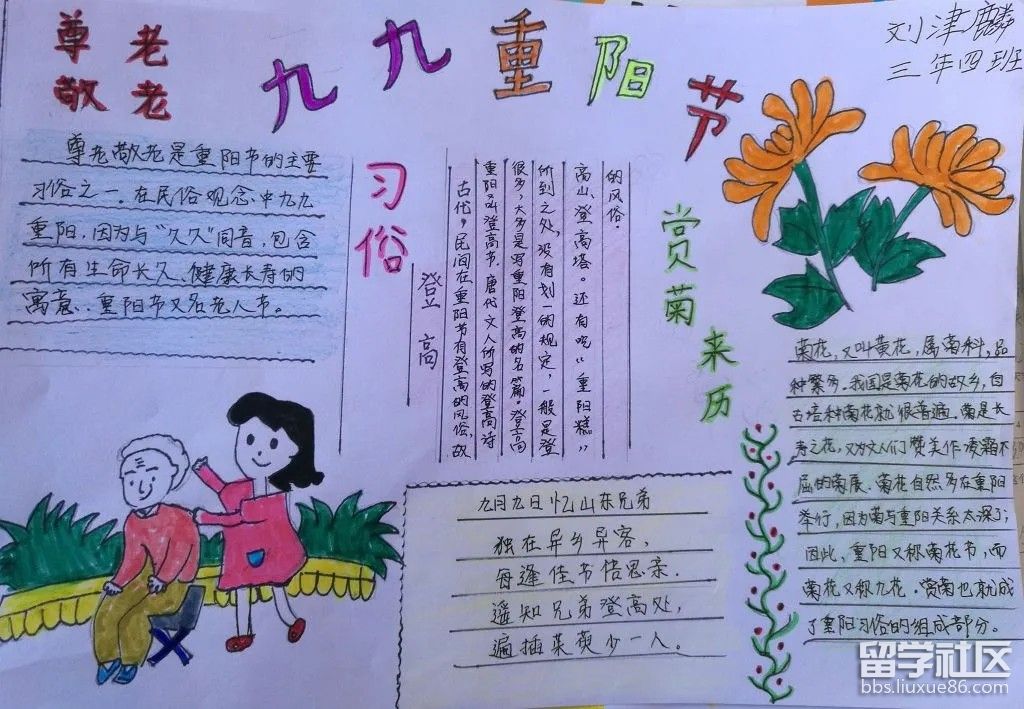 尊老
敬老
九九重阳节
刘津麟
三年四班
尊老敬老是重阳节的主要
习俗之一。在民俗观念中九九
重阳，因为与“久久”同音，包含
所有生命长久、健康长寿的
寓意..重阳节又名老人节。
习俗
登高
古代，民间在重阳节有登高的风俗，故
重阳叫登高节。唐代文人所写的登高诗
很多，大多是写重阳登高的名篇。登高
所到之处，没有划一的规定，一般是登
高山、登高塔。还有吃“重阳糕”
的风俗.
赏菊来历
菊花，又叫黄花，属菊科，品
种繁多.我国是菊花的故乡，自
古培种菊花就很普遍.菊是长
寿之花，又为文人们赞美作凌霜不
屈的菊展.菊花自然多在重阳
举行，因为菊与重阳关系太深了；
因此，重阳又称菊花节，而
菊花又称九花.赏菊也就成
了重阳习俗的组成部分。
九月九日忆山东兄弟
独在异乡异客，
每逢佳节倍思亲.
遥知兄弟登高处，
遍插茱萸少一人。
留学社区
bbs.liuxue86.com